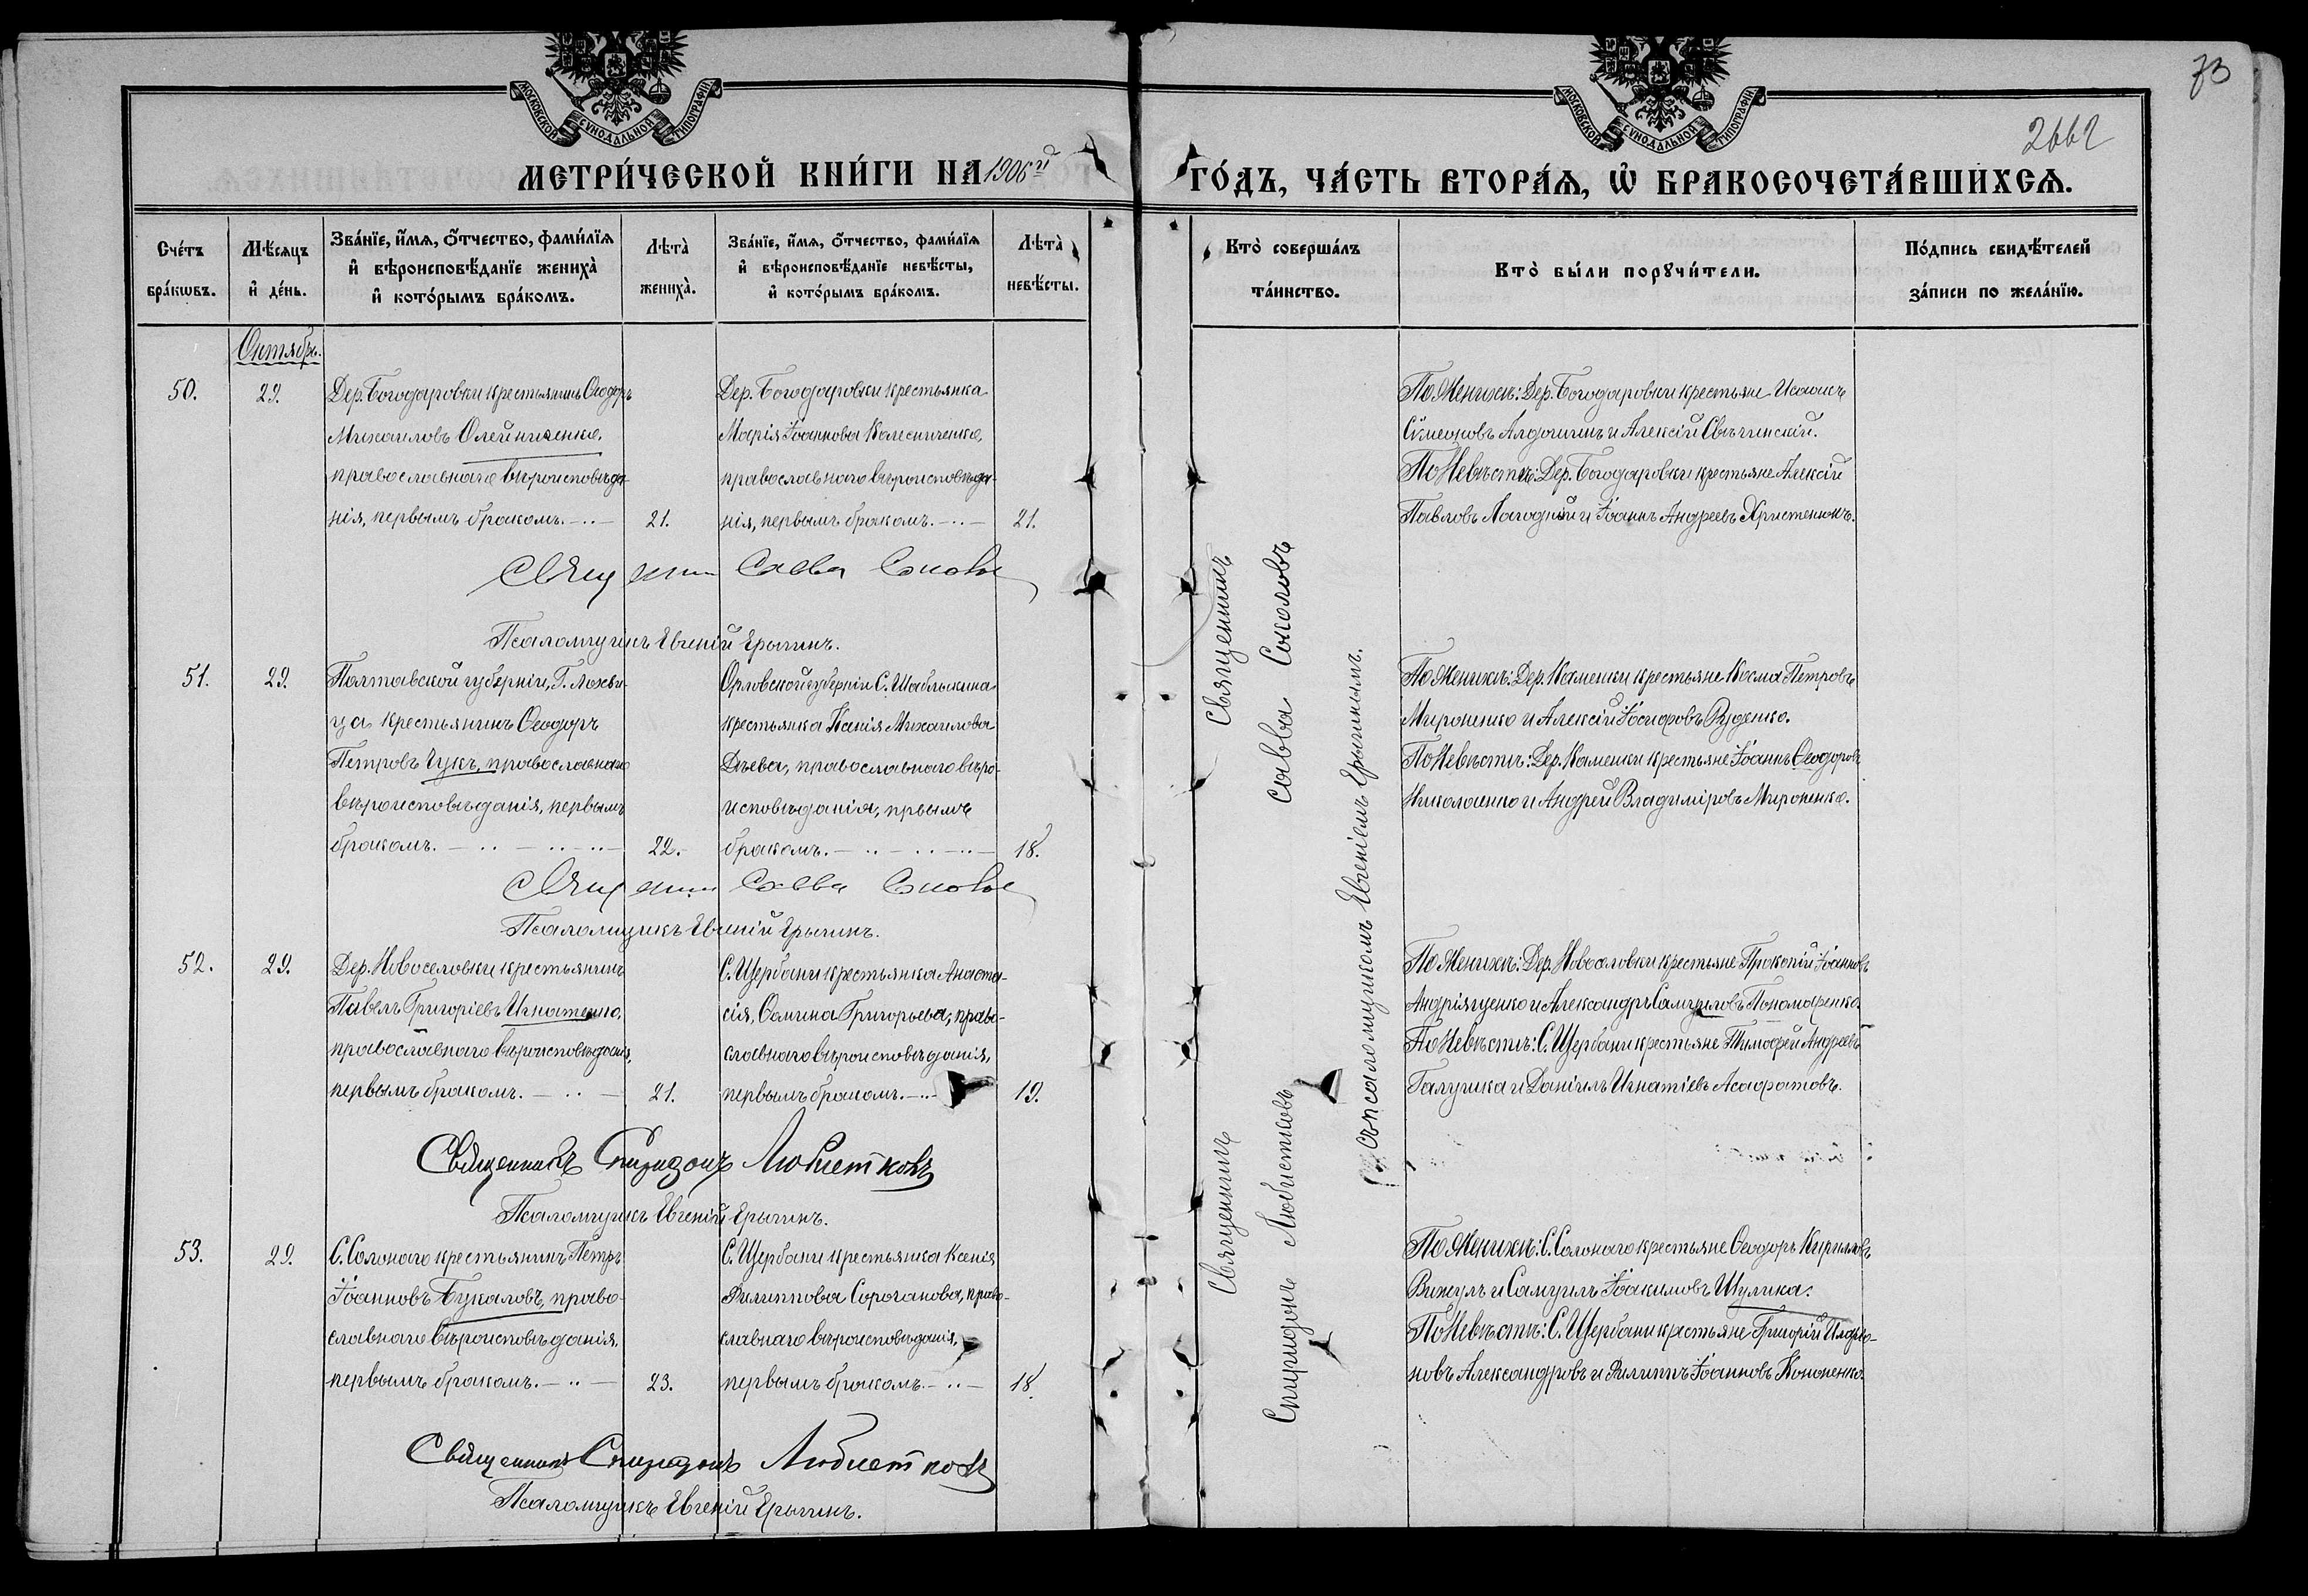 МОСКОВСКОЙ СѴНОДАЛЬНОЙ ТИПОГРАФІИ
МОСКОВСКОЙ СѴНОДАЛЬНОЙ ТИПОГРАФІИ
73
2662
МЕТРИ́ЧЕСКОЙ КНИ́ГИ НА 1906й
ГО́ДЪ, ЧА́СТЬ ВТОРА́Ѧ, Ѽ БРАКОСОЧЕТА́ВШИХСѦ.
Сче́тъ бра́кѡвъ.
Мѣ́сяцъ и҆ де́нь.
Зва́нїе, и҆́мѧ, ѻ҆́тчество, фами́лїѧ
и҆ вѣроисповѣ́данїе жениха̀
и҆ кото́рымъ бра́комъ.
Лѣта̀ жениха̀.
Зва́нїе, и҆́мѧ, ѻ҆́тчество, фами́лїѧ
и҆ вѣроисповѣ́данїе невѣ́сты,
и҆ кото́рымъ бра́комъ.
Лѣта̀ невѣ́сты.
Кто̀ соверша́лъ та́инство.
Кто̀ бы́ли порꙋчи́тели.
По́дпись свидѣ́телей за́писи по жела́нїю.
Октябрь.
50.
29.
Дер. Богодаровки крестьянинъ Ѳеодоръ
Михаиловъ Олейниченко,
православнаго вѣроисповѣда-
нія, первымъ бракомъ.
21.
Дер. Богодаровки крестьянка
Марія Іоаннова Колесниченко,
православнаго вѣроисповѣда-
нія, первымъ бракомъ.
21.
По Женихѣ: Дер. Богодаровки крестьяне Исаакъ
Сѵмеоновъ Алдошинъ и Алексій Свѣчинскій.
По Невѣстѣ: Дер. Богодаровки крестьяне Алексій
Павловъ Лагодный и Іоаннъ Андреевъ Христенюкъ.
Савва
Псаломщикъ Евгеній Ерыгинъ.
51.
29.
Полтавской губерніи, Г. Лохви-
ца крестьянинъ Ѳеодоръ
Петровъ Чукъ, православнаго
вѣроисповѣданія, первымъ
бракомъ.
22.
Орловской губерніи С. Шаблыкина
крестьянка Михаилова
православнаго вѣро-
исповѣданія, првымъ
бракомъ.
18.
По Женихѣ: Дер. Каменки крестьяне Косма Петровъ
Мироненко и Алексій Іосифовъ Руденко.
По Невѣстѣ: Дер. Каменки крестьяне Іоаннъ Ѳеодоровъ
Николаенко и Андрей Владиміровъ Мироненко.
Савва
Псаломщикъ Евгеній Ерыгинъ.
52.
29.
Дер. Новоселовки крестьянинъ
Павелъ Григоріевъ Игнатенко,
православнаго вѣроисповѣданія,
первымъ бракомъ.
21.
С. Щербани крестьянка Анаста-
сія, Ѳомина Григорьева, право-
славнаго вѣроисповѣданія,
первымъ бракомъ.
19.
По Женихѣ: Дер. Новоселовки крестьяне Прокопій Іоанновъ
Андріященко и Александръ Самуиловъ Пономаренко.
По Невѣстѣ: С. Щербани крестьяне Тимофей Андреевъ
Галушка и Даніилъ Игнатіевъ Асафатовъ.
Священникъ Спиридонъ Любистковъ
Псаломщикъ Евгеній Ерыгинъ.
53.
29.
С. Солонаго крестьянинъ Петръ
Іоанновъ Букаловъ, право-
славнаго вѣроисповѣданія,
первымъ бракомъ.
23.
С. Щербани крестьянка Ксенія
Филиппова Сороганова, право-
славнаго вѣроисповѣданія,
первымъ бракомъ.
18.
По Женихѣ: С. Солонаго крестьяне Ѳеодоръ Кирилловъ
Вижулъ и Самуилъ Іоакимовъ Шулика.
По Невѣстѣ: С. Щербани крестьяне Григорій
новъ Александровъ и Филиппъ Іоанновъ Кононенко.
Священникъ Спиридонъ Любистковъ
Псаломщикъ Евгеній Ерыгинъ.
Священникъ
Савва Соколовъ
Священникъ
Спиридонъ Любистковъ
съ псаломщикомъ Евгеніемъ Ерыгинымъ.